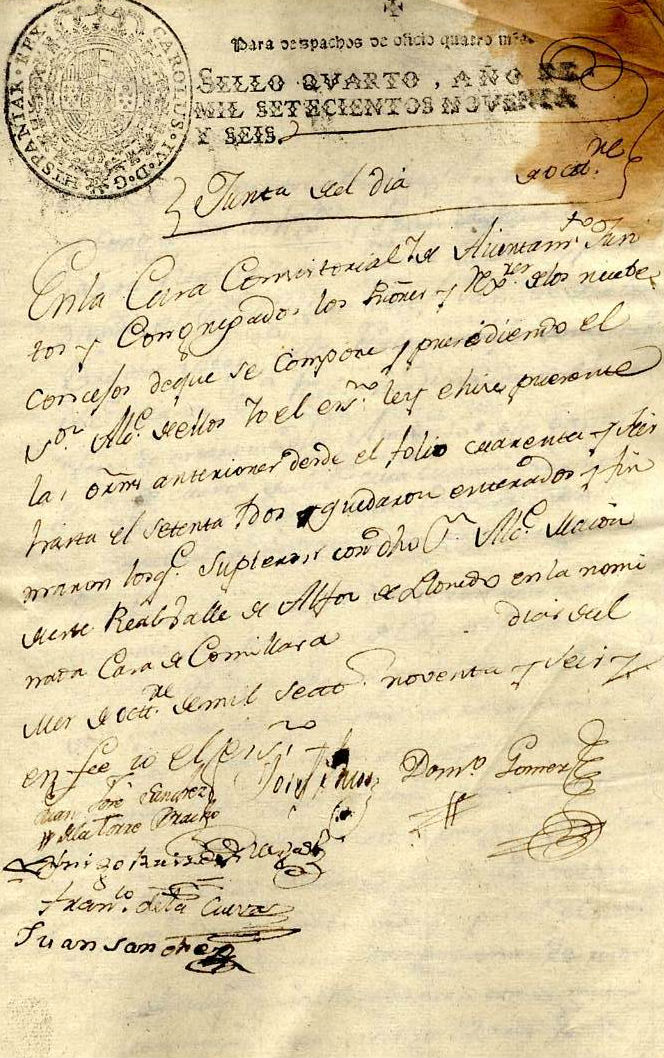 ✠
CAROLUS · IV · D · G · HISPANIAR · REX ·
Para despachos de oficio quatro mrs.
SELLO QVARTO, AÑO DE
MIL SETECIENTOS NOVENTA
Y SEIS.
Junta del dia de octre
En la Casa Consistorial de Aiuntamto Jun
tos y Congregados los Señores y Rexres de los nuebe
concejos de que se compone, y presidiendo el
Sor Alce de ellos Yo el esno ley e hice presente
las orns anteriores desde el folio cuarenta y seis
hasta el setenta y dos y quedaron enterados y fir
maron los qe supieron con dho Sr Alce Maior
de este Real Valle de Alfoz de Lloredo en la nomi
nada Casa de Comillas a dias del
Mes de octre de mil setto noventa y seis y
en fee yo el esno
Domo Gomez
Juan Jose Sanchez
de la Torre Bracho
Ruiz de
Franco de la Cueva
Juan Sanchez